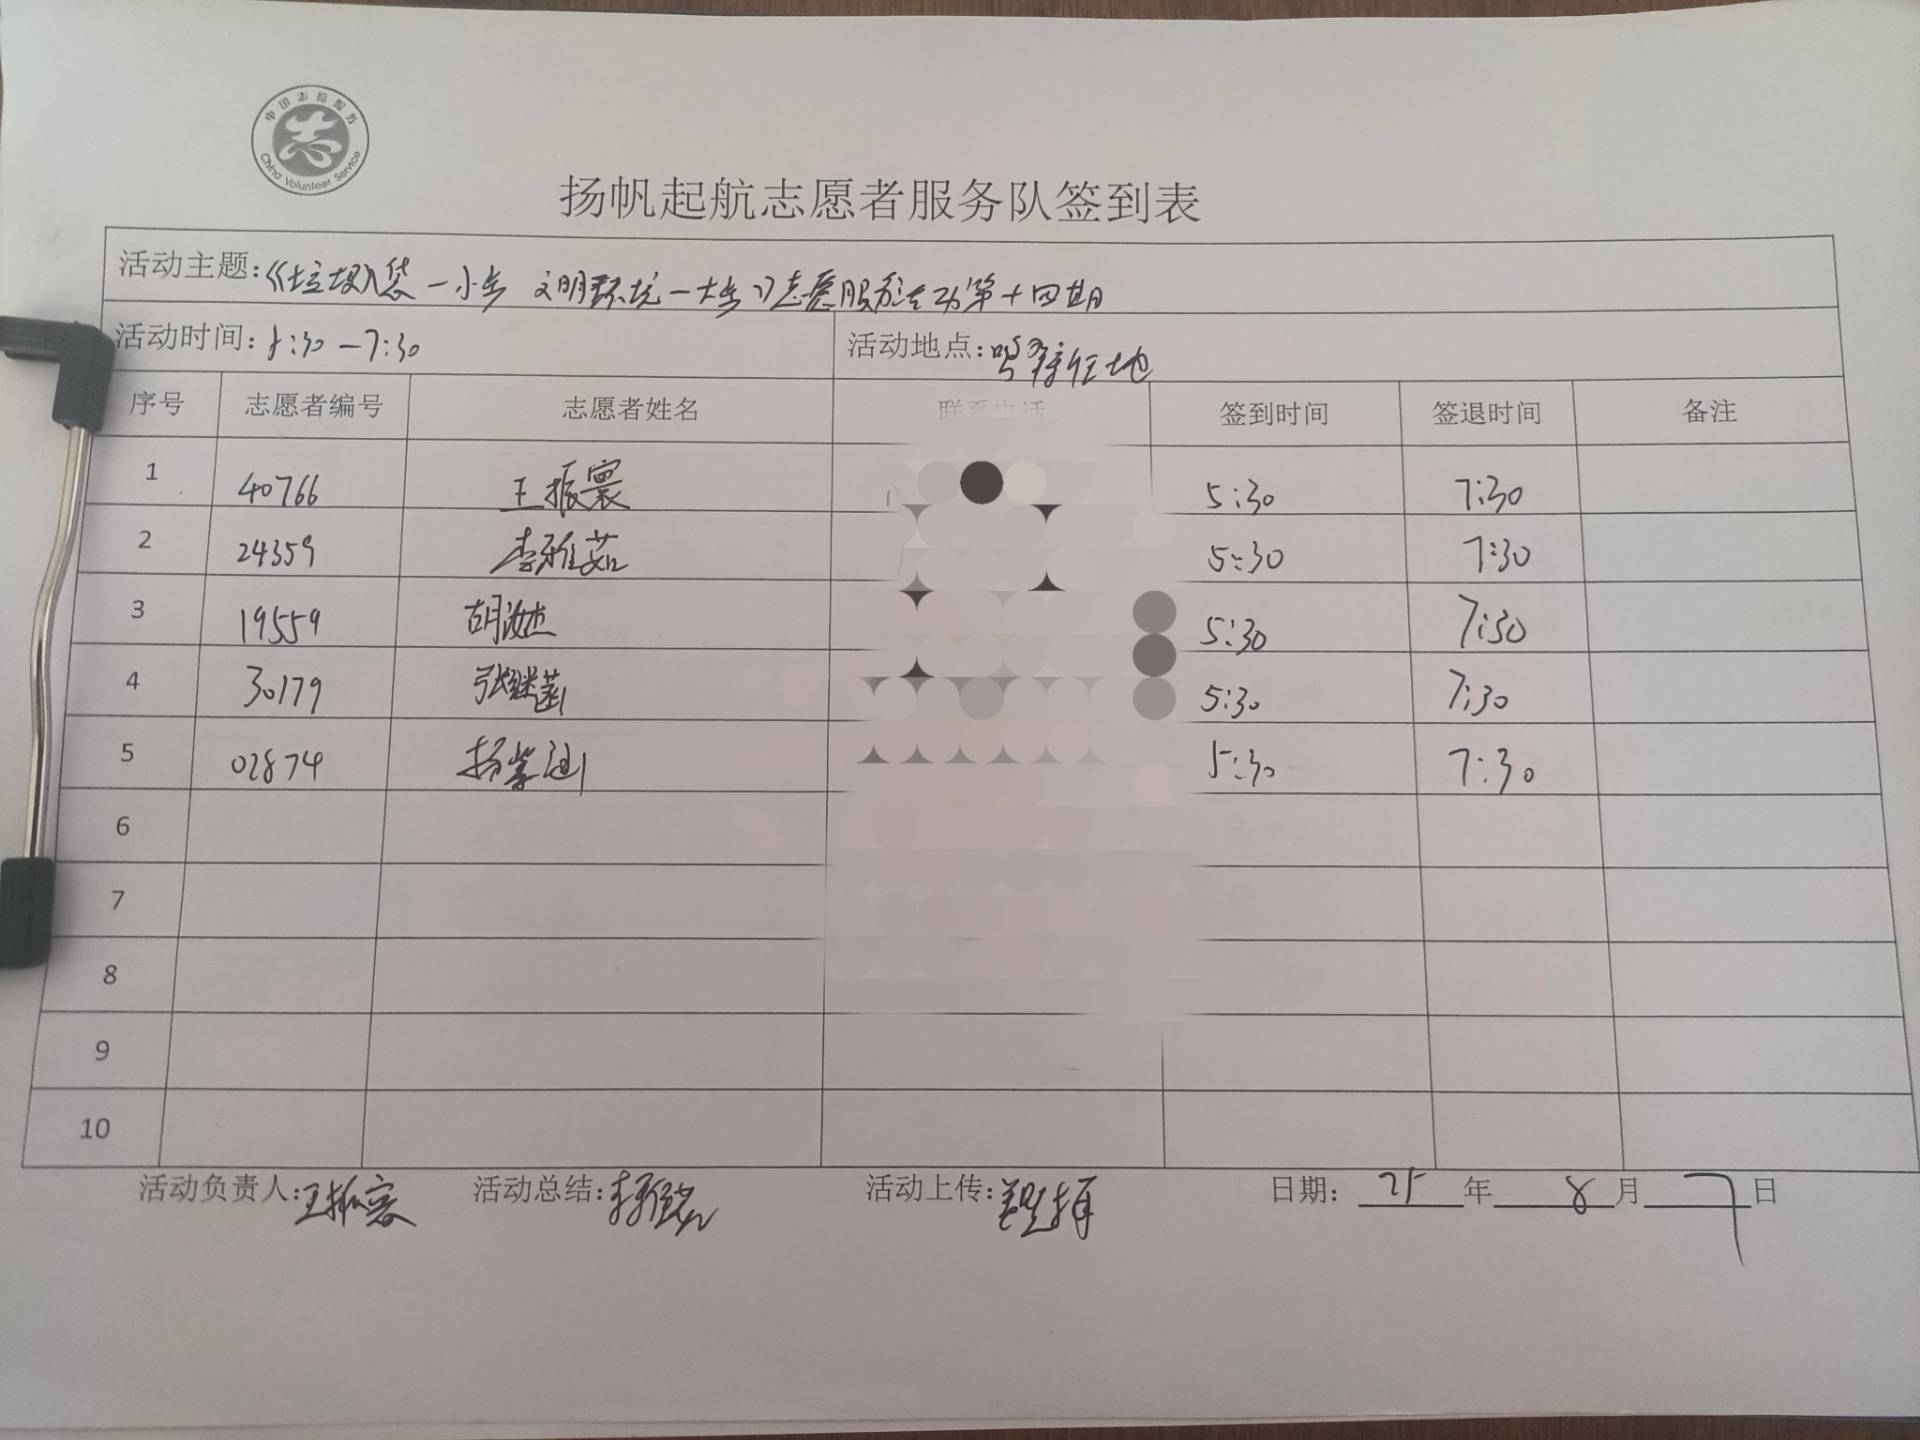 中国志愿服务
China Volunteer Service
扬帆起航志愿者服务队签到表
活动主题:《垃圾入袋一小步 文明环境一大步》志愿服务活动第十四期
活动时间: 5:30—7:30 活动地点:
序号 志愿者编号 志愿者姓名 联系电话 签到时间 签退时间 备注
1 40766 王振寰 5:30 7:30
2 24359 李雅茹 5:30 7:30
3 19559 胡 5:30 7:30
4 30179 张继 5:30 7:30
5 02874 杨紫 5:30 7:30
6
7
8
9
10
活动负责人:王振寰 活动总结:李雅茹 活动上传: 日期: 25 年 8 月 7 日